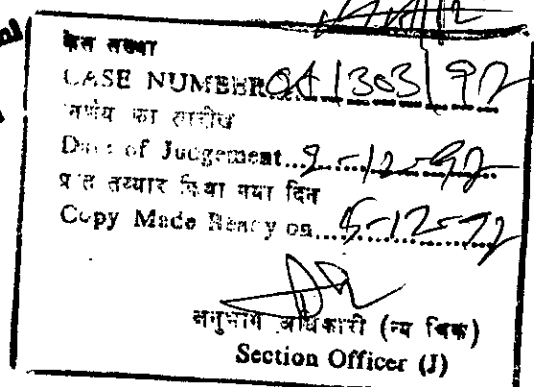 केस संख्या
CASE NUMBER OA/303/92
निर्णय का तारीख
Date of Judgement...2-12-92
प्रति तय्यार किया गया दिन
Copy Made Ready on....5-12-92
अनुभाग अधिकारी (न्यायिक)
Section Officer (J)